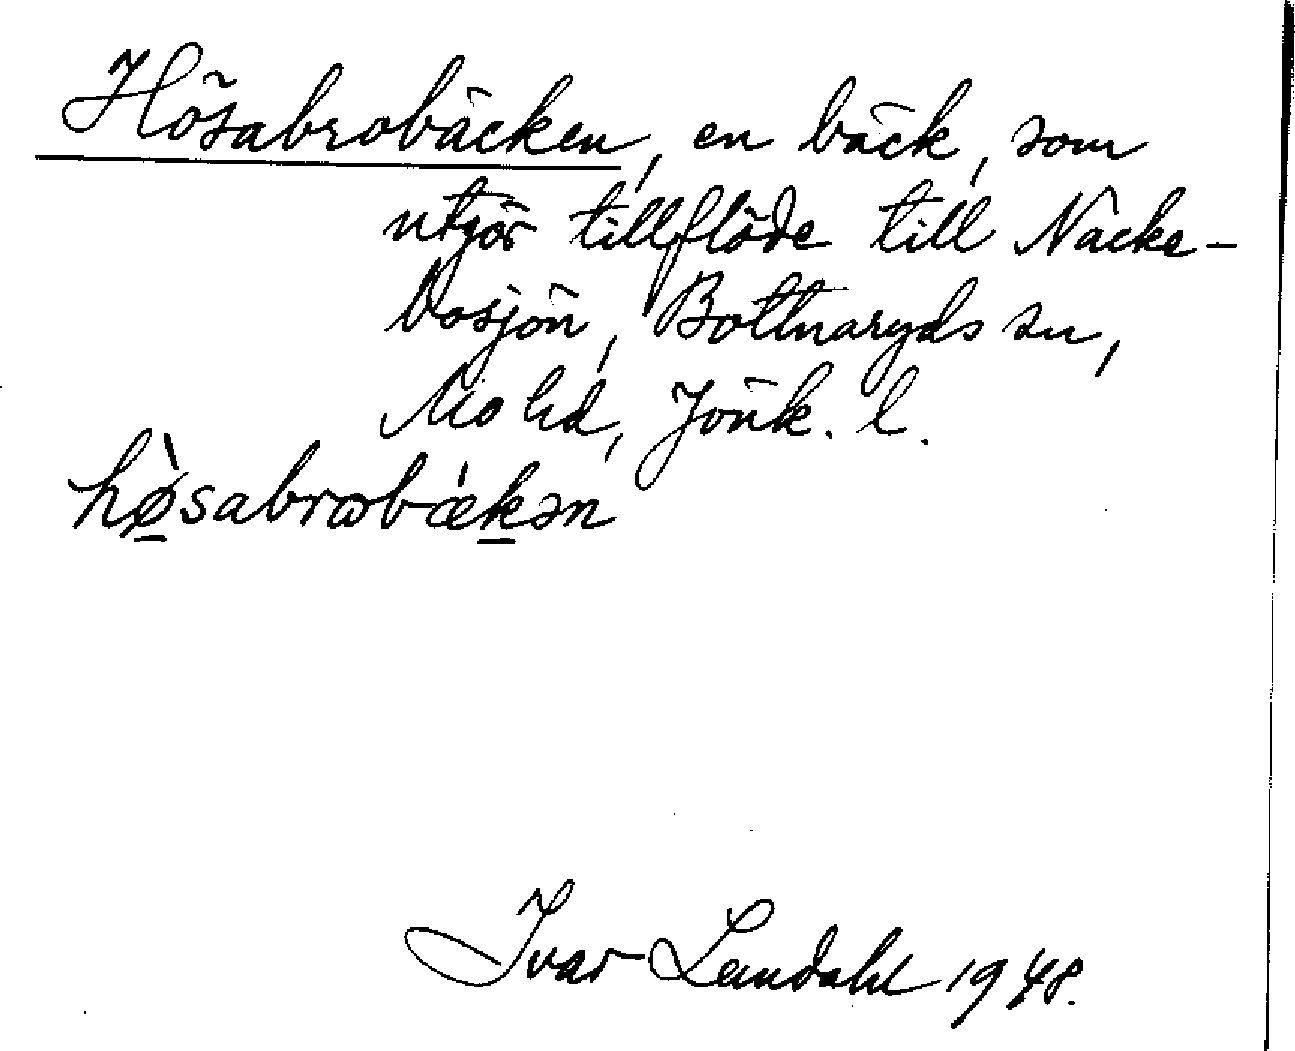 Hösabrobäcken, en bäck, som
utgör tillflöde till Nacke-
bosjön, Bottnaryds sn,
Mo hd, Jönk. l.
hø̀sabrωbǽkən
Ivar Lundahl 1948.